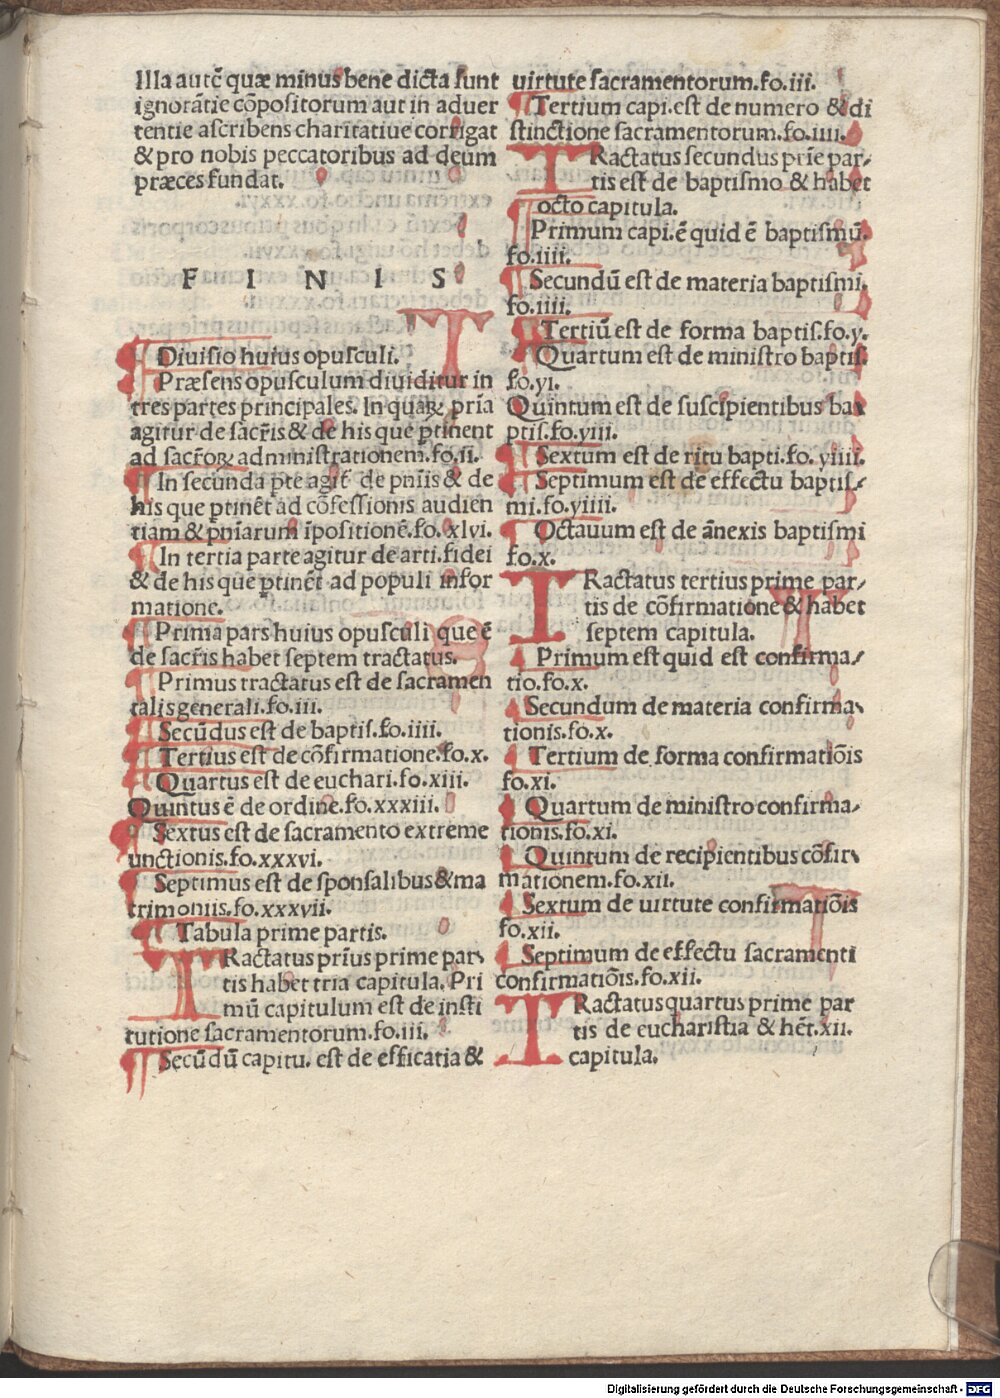 Illa autē quæ minus bene dicta ſunt
ignorātie cōpoſitorum aut in aduer
tentie aſcribens charitatiue corrigat
& pro nobis peccatoribus ad deum
præces fundat.
F I N I S
Diuiſio huius opuſculi.
Præſens opuſculum diuiditur in
tres partes principales. In quaꝝ pría
agitur de sacr̄is & de his que ꝑtinent
ad sacr̄oꝝ administrationem.fo.ii.
In ſecunda ꝑte agit̄ de pn̄iis & de
his que ꝑtinēt ad cōfeſſionis audien
tiam & pn̄iarum īpoſitionē.fo.xlvi.
In tertia parte agitur de arti.fidei
& de his que ꝑtinēt ad populi infor
matione.
Prima pars huius opuſculi que ē
de ſacr̄is habet ſeptem tractatus.
Primus tractatus eſt de ſacramen
talis generali.fo.iii.
Secūdus eſt de baptiſ.fo.iiii.
Tertius eſt de cōfirmatione.fo.x.
Quartus eſt de euchari.fo.xiii.
Quintus ē de ordine.fo.xxxiii.
Sextus eſt de ſacramento extreme
unctionis.fo.xxxvi.
Septimus eſt de ſponſalibus & ma
trimoniis.fo.xxxvii.
Tabula prime partis.
TRactatus prīus prime par⸗
tis habet tria capitula. Pri
mū capitulum eſt de inſti
tutione ſacramentorum.fo.iii.
Secūdū capitu. eſt de efficatia &
uirtute ſacramentorum.fo.iii.
Tertium capi.eſt de numero & di
ſtinctione ſacramentorum.fo.iiii.
TRactatus ſecundus prīe par⸗
tis eſt de baptiſmo & habet
octo capitula.
Primum capi.ē quid ē baptiſmū.
fo.iiii.
Secundū eſt de materia baptiſmi.
fo.iiii.
Tertiū eſt de forma baptiſ.fo.y.
Quartum eſt de miniſtro baptiſ.
fo.yi.
Quintum eſt de ſuſcipientibus ba⸗
ptiſ.fo.yiii.
Sextum eſt de ritu bapti.fo.yiiii.
Septimum eſt de effectu baptiſ⸗
mi.fo.yiiii.
Octauum eſt de ānexis baptiſmi
fo.x.
TRactatus tertius prime par⸗
tis de cōfirmatione & habet
ſeptem capitula.
Primum eſt quid eſt confirma⸗
tio.fo.x.
Secundum de materia confirma⸗
tionis.fo.x.
Tertium de forma confirmatiōis
fo.xi.
Quartum de miniſtro confirma⸗
tionis.fo.xi.
Quintum de recipientibus cōfir⸗
mationem.fo.xii.
Sextum de uirtute confirmatiōis
fo.xii.
Septimum de effectu ſacramenti
confirmatiōis.fo.xii.
TRactatus quartus prime par
tis de euchariſtia & hēt.xii.
capitula.
Digitalisierung gefördert durch die Deutsche Forschungsgemeinschaft - DFG